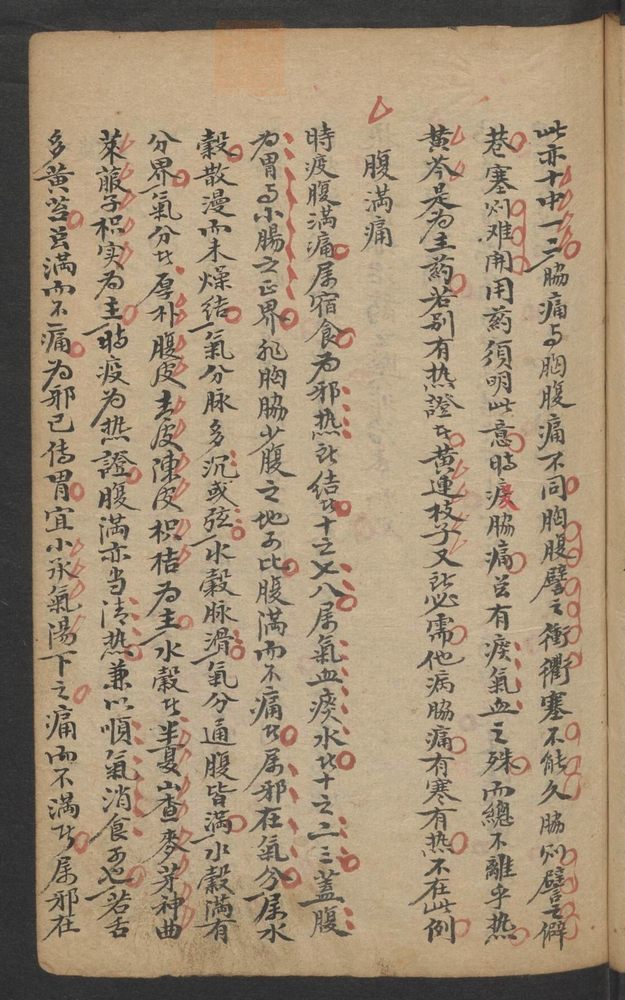 此亦十中一二脇痛与胸腹痛不同胸腹譬之衝衢塞不能久脇则譬之僻
巷塞则难開用药須明此意時疫脇痛虽有痰氣血之殊而總不離乎热
黄芩是为主药若别有热證者黄連枝子又所必需他病脇痛有寒有热不在此例
腹満痛
時疫腹満痛属宿食为邪热所结者十之七八属氣血痰水者十之二三蓋腹
为胃与小腸之正界非胸脇少腹之地可比腹満而不痛者属邪在氣分属水
穀散漫而未燥结氣分脉多沉或弦水穀脉滑氣分通腹皆満水穀満有
分界氣分者厚朴腹皮青皮陳皮枳桔为主水穀者半夏山查麥芽神曲
莱菔子枳实为主時疫为热證腹満亦当清热兼以順氣消食可也若舌
多黄苔虽満而不痛为邪已傳胃宜小承氣湯下之痛而不満者属邪在